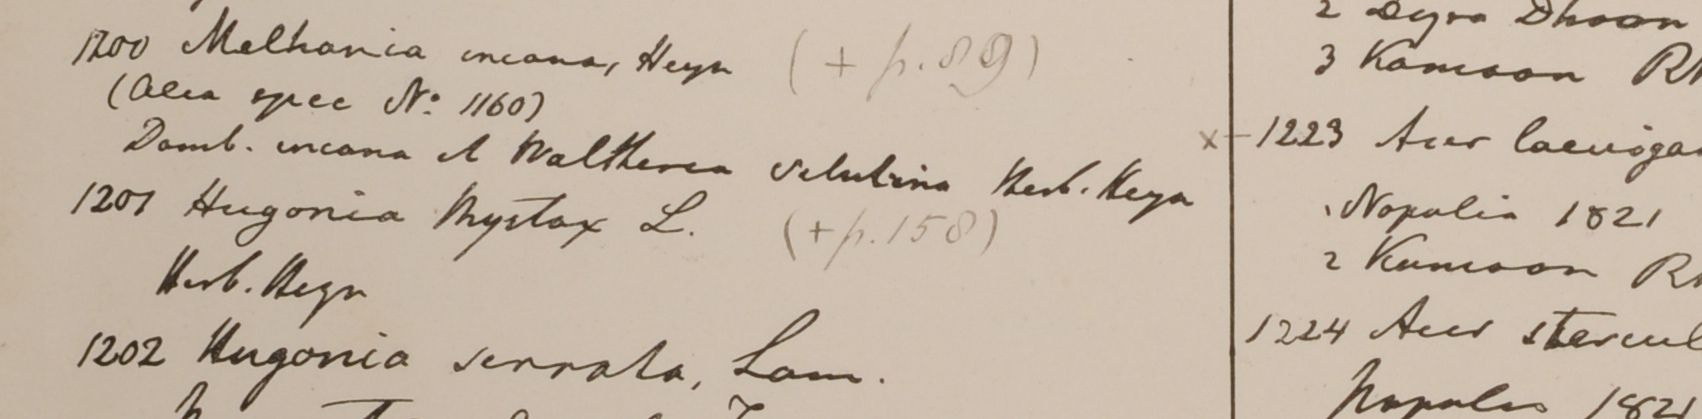 1200 Melhania incana, Heyn (+ p. 89)
(Alia spec No. 1160)
Domb. incana et Waltheria velutina Herb. Heyn
1201 Hugonia Mystax L. (+ p. 158)
Herb. Heyn
1202 Hugonia serrata, Lam.
2 Deyra Dhoon
3 Kamoon R
x – 1223 Acer laeviga
Napalia 1821
2 Kumaon R
1224 Acer stercul
Napalia 1821